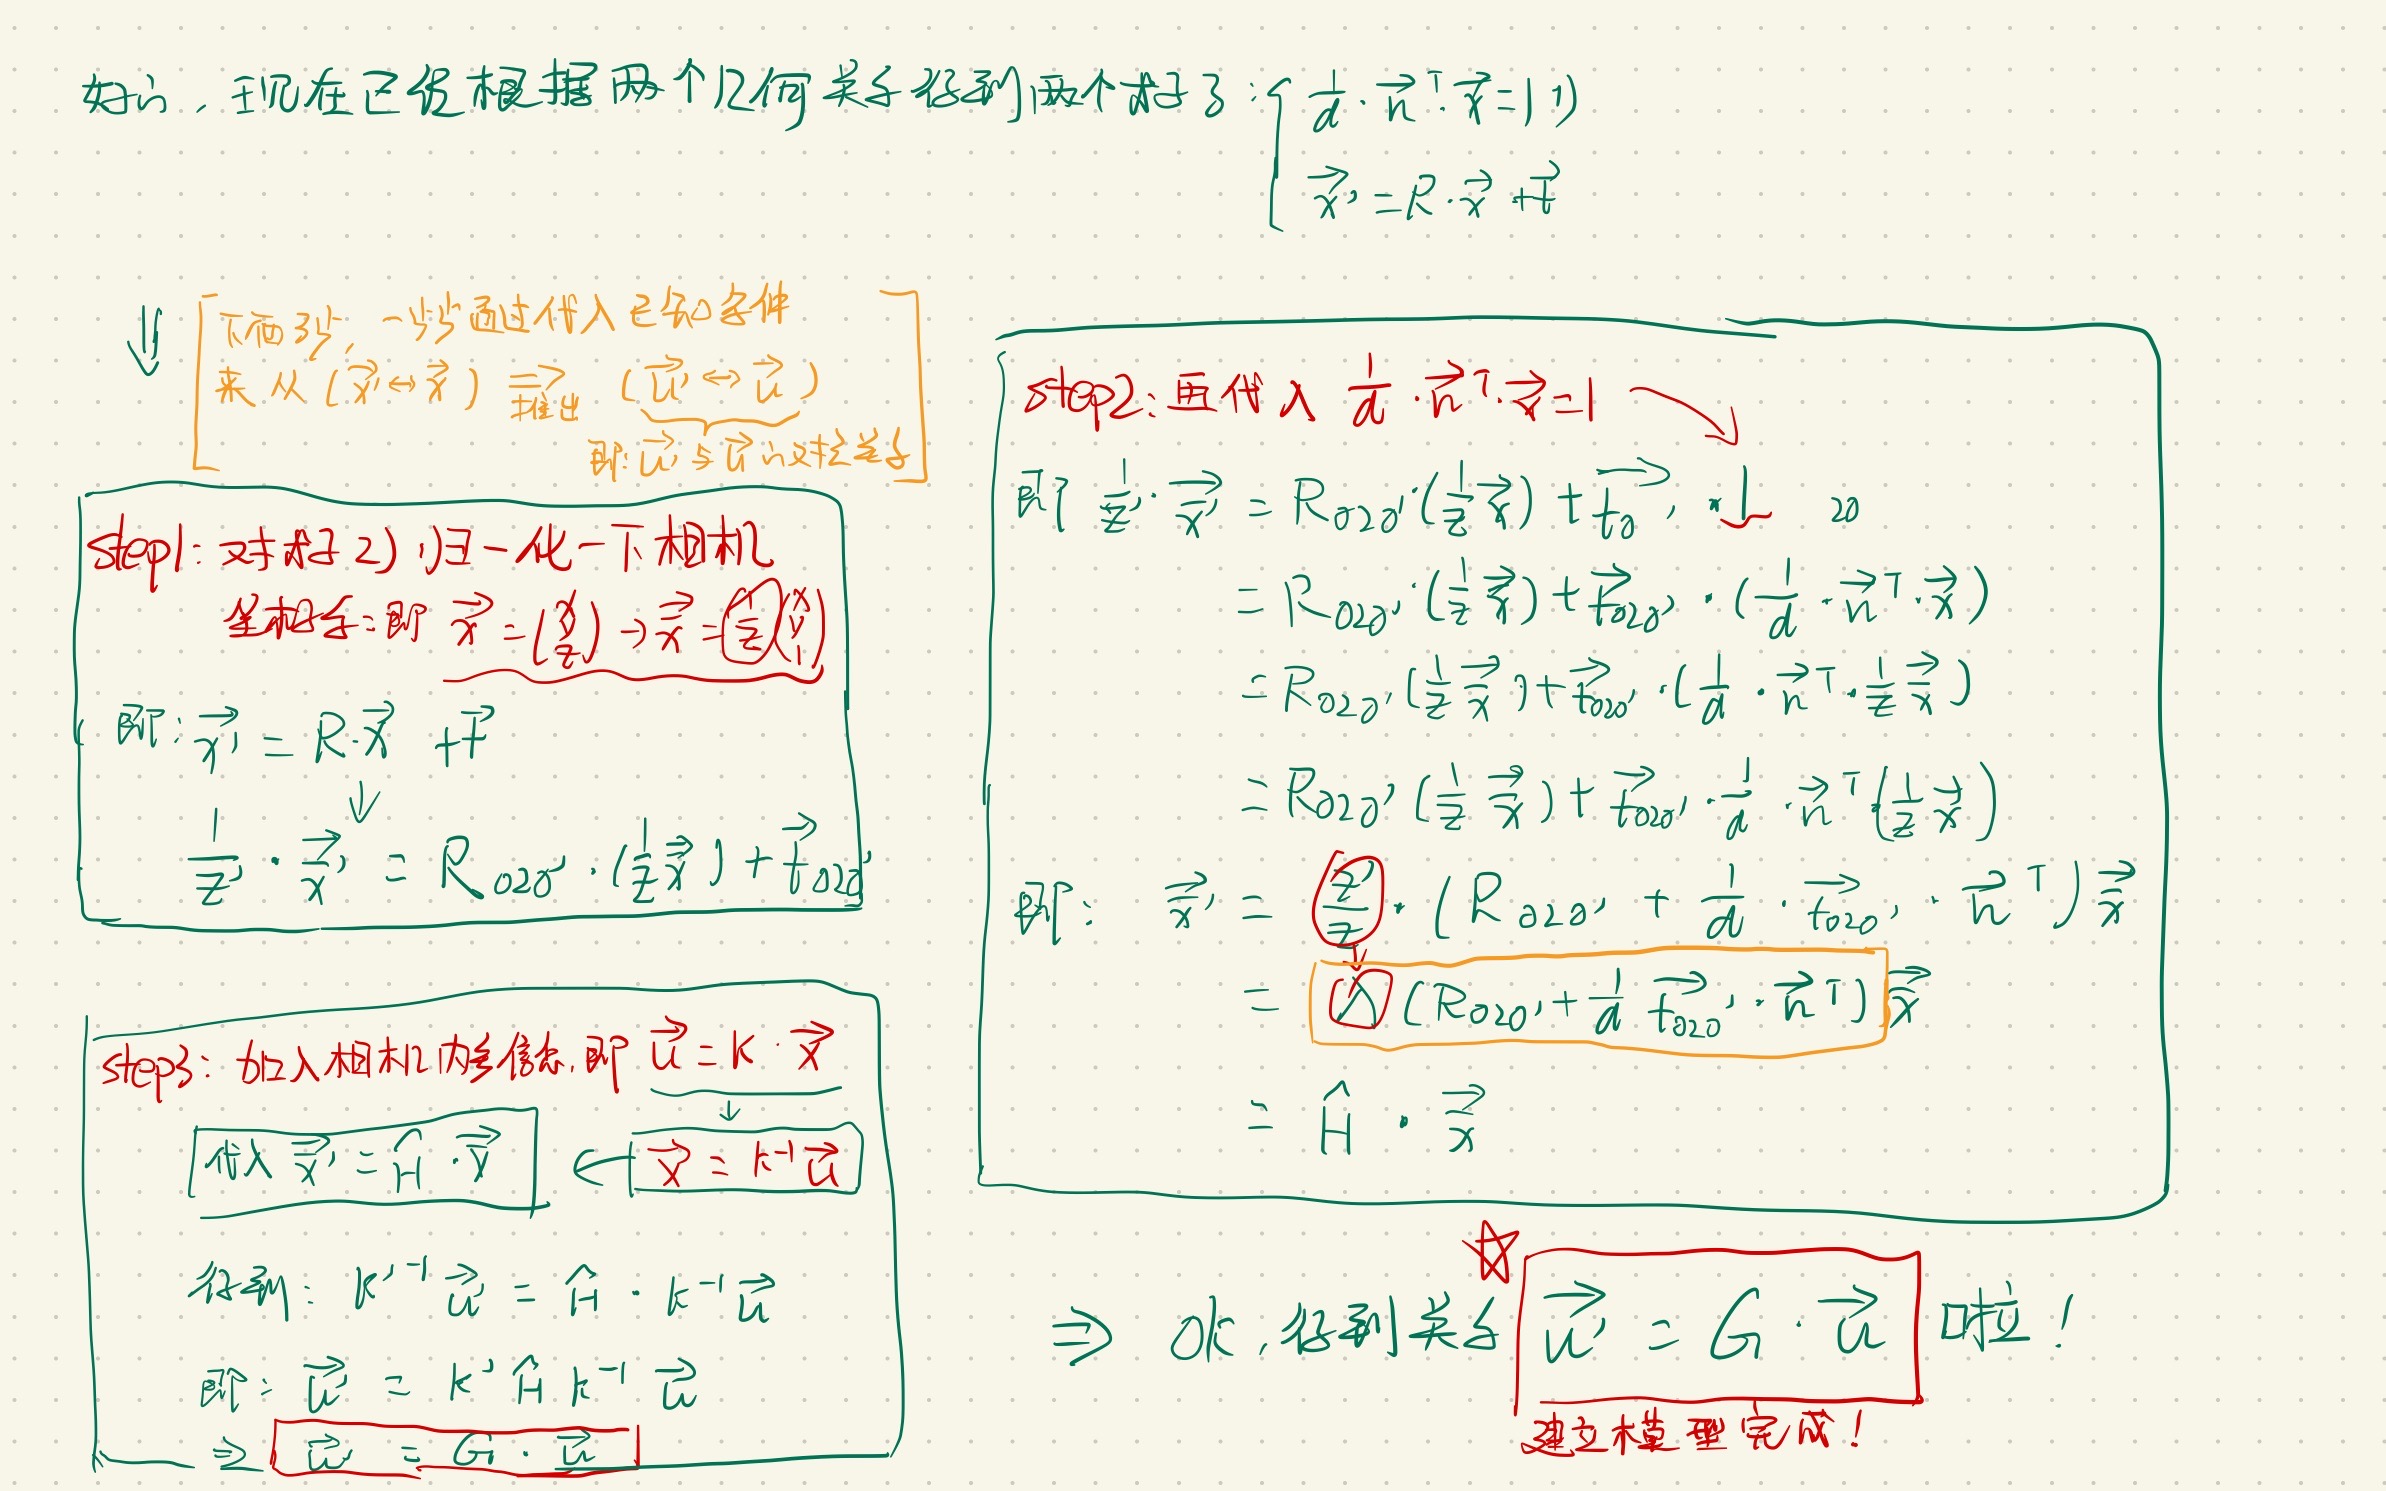 好的，现在已经根据两个几何关系得到两个式子了：{ 1/d · n⃗ᵀ · x⃗ = 1 1)
x⃗' = R · x⃗ + t⃗
⇓ [下面3步，一步步通过代入已知条件
来从 (x⃗' ↔ x⃗) ⇒推出 (u⃗' ↔ u⃗)
即: u⃗' 与 u⃗ 的对应关系]
step1: 对式子2)，归一化一下相机
坐标系: 即 x⃗ = (x y z) → x⃗ = 1/z (x y 1)
即: x⃗' = R · x⃗ + t⃗
↓
1/z' · x⃗' = R_{020'} · (1/z x⃗) + t⃗_{020'}
step2: 再代入 1/d · n⃗ᵀ · x⃗ = 1
即 1/z' · x⃗' = R_{020'} · (1/z x⃗) + t⃗_0' * 1 20
= R_{020'} · (1/z x⃗) + t⃗_{020'} · (1/d · n⃗ᵀ · x⃗)
= R_{020'} (1/z x⃗) + t⃗_{020'} · (1/d · n⃗ᵀ · 1/z x⃗)
= R_{020'} (1/z x⃗) + t⃗_{020'} · 1/d · n⃗ᵀ (1/z x⃗)
即: x⃗' = z'/z · (R_{020'} + 1/d · t⃗_{020'} · n⃗ᵀ) x⃗
= λ (R_{020'} + 1/d t⃗_{020'} · n⃗ᵀ) x⃗
= Ĥ · x⃗
step3: 加入相机内参信息, 即 u⃗ = K · x⃗
↓
代入 x⃗' = Ĥ · x⃗ ← x⃗ = K⁻¹ u⃗
得到: K'⁻¹ u⃗' = Ĥ · K⁻¹ u⃗
即: u⃗' = K' Ĥ K⁻¹ u⃗
⇒ u⃗' = G · u⃗
⇒ OK, 得到关系 u⃗' = G · u⃗ 啦！
建立模型完成！